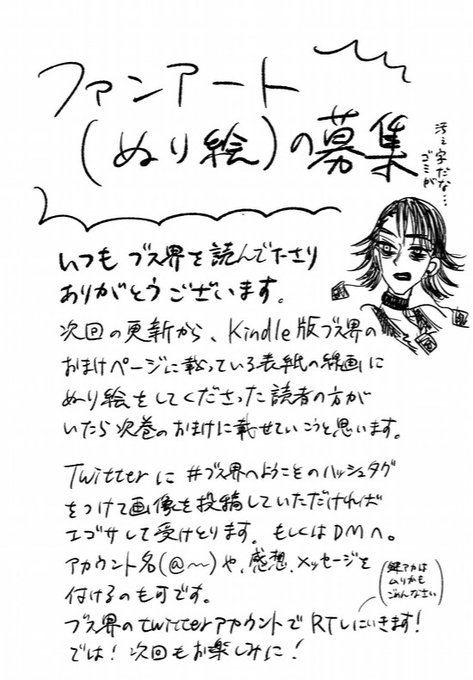 ファンアート
(ぬり絵)の募集
汚ぇ字だな…
ゴミが
いつも ブス界を読んでくださり
ありがとうございます。
次回の更新から、Kindle版ブス界の
おまけページに載っている表紙の線画に
ぬり絵をしてくださった読者の方が
いたら次巻のおまけに載せていこうと思います。
Twitterに #ブス界へようこそのハッシュタグ
をつけて画像を投稿していただければ
エゴサして受けとります。もしくはDMへ。
アカウント名(@〜)や、感想、メッセージを
付けるのも可です。
(鍵アカは
ムリかも
ごめんなさい)
ブス界のtwitterアカウントで RTしにいきます!
では! 次回もお楽しみに!